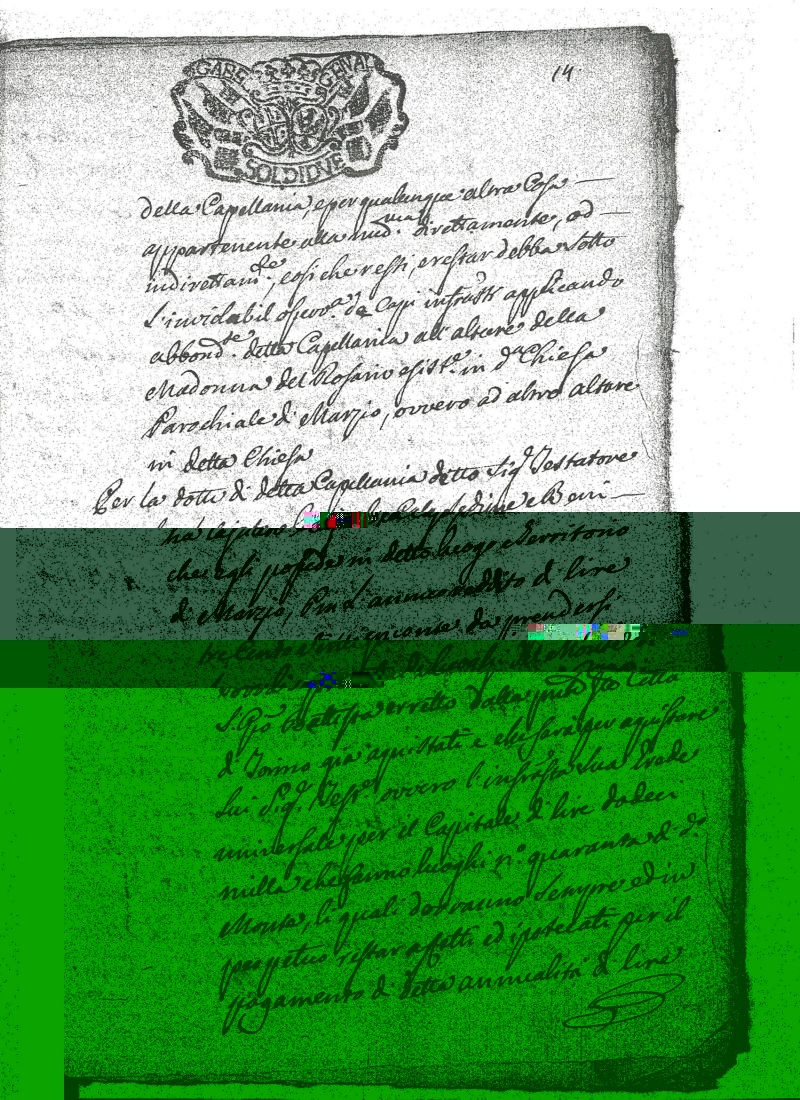 GABE GENAL
SOLDI DVE
14
della Capellania, e per qualunque altra Cosa
appartenente alla med.ma direttamente, od
indirettam.te, così che resti, e restar debba sotto
L'inviolabil osserv.a de Capi infrasti applicando
abbond.te detta Capellania all'altare della
Madonna del Rosario esist.e in d.a Chiesa
Parochiale di Marzio, ovvero ad altro altare
in detta Chiesa
Per la dotte di detta Capellania detto Sig.r Testatore
ha
che egli possede in detto luogo e Territorio
di Marzio, Per L'annuo reddito di lire
tre Cento
S. Gio Battista erretto dalla Città
di Torino già aquistati e che sarà per aquistare
Lui Sig.r Test.re ovvero l'infrasta sua Erede
universale per il Capitale di lire dodeci
milla che fanno luoghi n.o quaranta di d.o
Monte, li quali dovranno sempre ed in
perpetuo restar affetti ed ipotecati per il
pagamento di detta annualità di lire